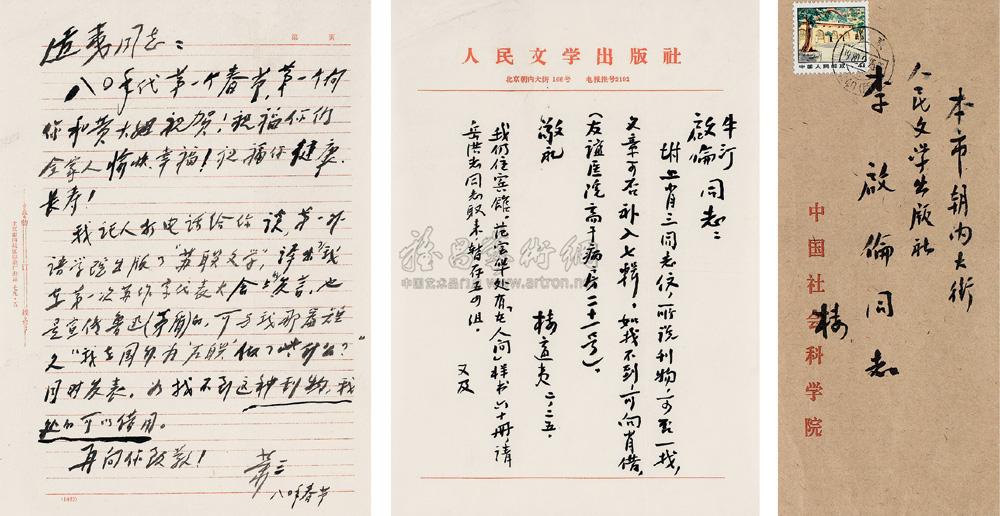 适夷同志：
八〇年代第一个春节，第一个向
你和黄大姐祝贺！祝福你们
全家人愉快幸福！祝福你健康、
长寿！
我托人打电话给你谈，第一外
语学院出版了“苏联文学”，译出了我
在第一次苏作家代表大会上发言，也
是宣传鲁迅(茅盾)的，可与我那篇短
文“我在国外为‘左联’做了些什么？”
同时发表。如找不到这种刊物，我
处的可以借用。
再向你致敬！
萧三
八〇年春节
第 页
(1402)
人民文学出版社
北京朝内大街 166号 电报挂号2192
牛汀
启伦 同志：
附上肖三同志信，所说刊物，可否一找，
文章可否补入七辑。如找不到，可向肖借，
(友谊医院高干病房二十一号)。
敬礼
楼适夷 二、二五、
我们住宾馆。范宝华处有《在人间》样书六十册，请
岳洪志同志取来转存五四组。
又及
雅昌艺术网
中国艺术品门户网站 www.artron.net
中国人民邮政
本市朝内大街
人民文学出版社
李启伦同志
楼
中国社会科学院